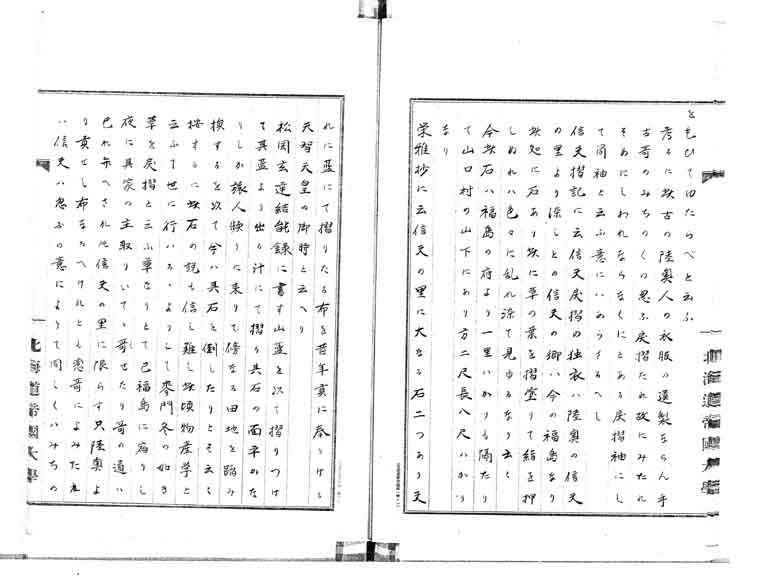 ともひて田たらべと云ふ
考るに此古の陸奥人の衣服の遺製ならん乎
古哥のみちのくの忍ふ戻摺たれ故にみたれ
そめにしわれならなくにとある戻摺袖にし
て同袖と云ふ意にハあらさるへし
信夫摺記に云信夫戻摺の独衣ハ陸奥の信夫
の里より深しとの信夫の郷ハ今の福島なり
此処に石あり此に草の葉を摺宝りて絹を押
しぬれハ色々に乱れ染て見ゆるなり云々
今此石ハ福島の府より一里ハかりも隔たり
て山口村の山下にあり方二尺長八尺ハかり
なり
栄雅抄に云信夫の里に大なる石二つあり又
北海道帝國大學
れに藍にて摺りたる布を昔年貢に奉りける
天智天皇の御時と云へり
松岡玄達結毦録に書す山藍を以て摺りつけ
て其藍より出る汁にて摺り其石の面平かな
りしか旅人疎りに来りて傍なる田地を踏み
損するを以て今ハ其石を倒したりとそ云々
按するに此石の説も信し難し此頃物産学と
云ふて世に行ハるゝよりして麥門冬の如き
草を戻摺と云ふ事なりとて已福島に宿りし
夜に其家の主取りいてゝ哥せたり哥の道ハ
已れ弁へされ共信夫の里に限らす只陸奥よ
り貢せし布をたへけれとも恋哥によみたれ
ハ信夫ハ忍ふの意によりて同しくハみちの
北海道帝國大學